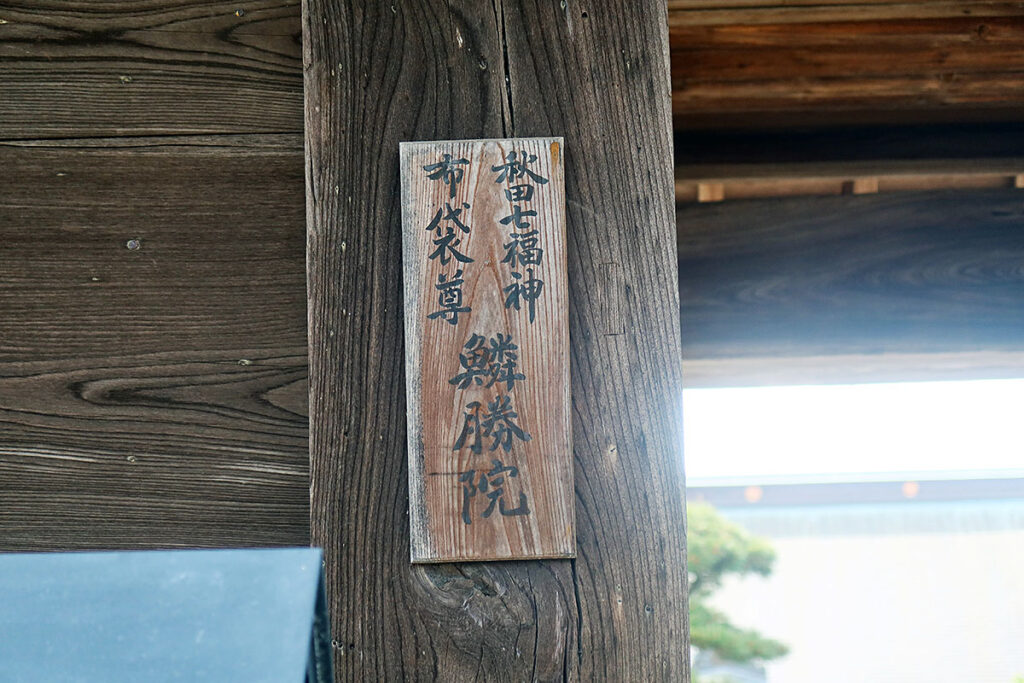 秋田七福神
布袋尊
鱗勝院